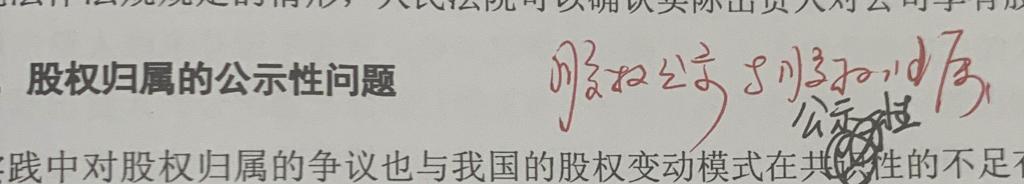 人民法院可以确认实际出资人对公司享有股
股权归属的公示性问题
股权公示与股权归属
公示性
实践中对股权归属的争议也与我国的股权变动模式在共 性的不足